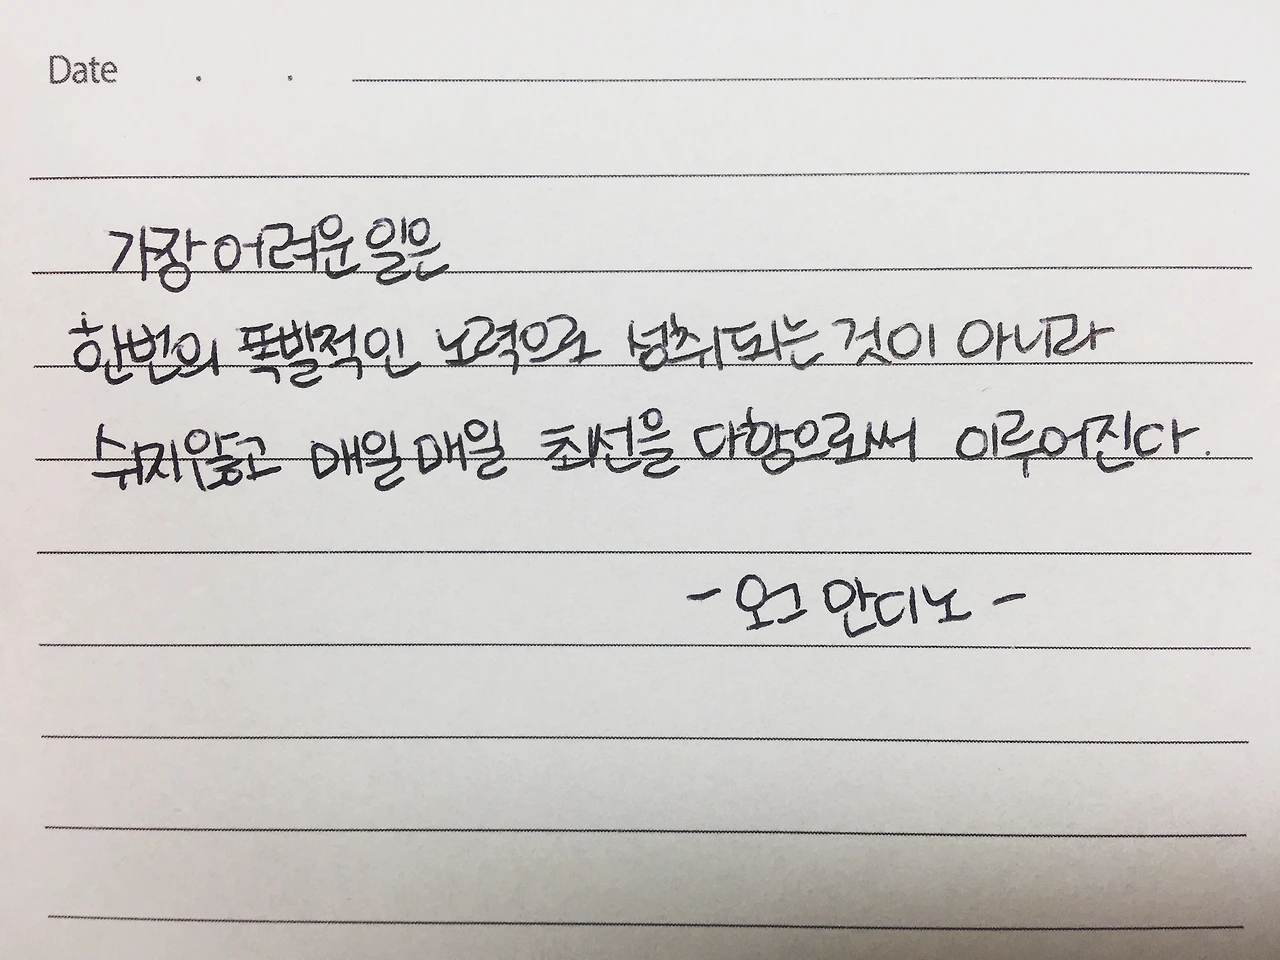 Date . .
가장 어려운 일은
한번의 폭발적인 노력으로 성취되는 것이 아니라
쉬지않고 매일매일 최선을 다함으로써 이루어진다.
- 오그 만디노 -